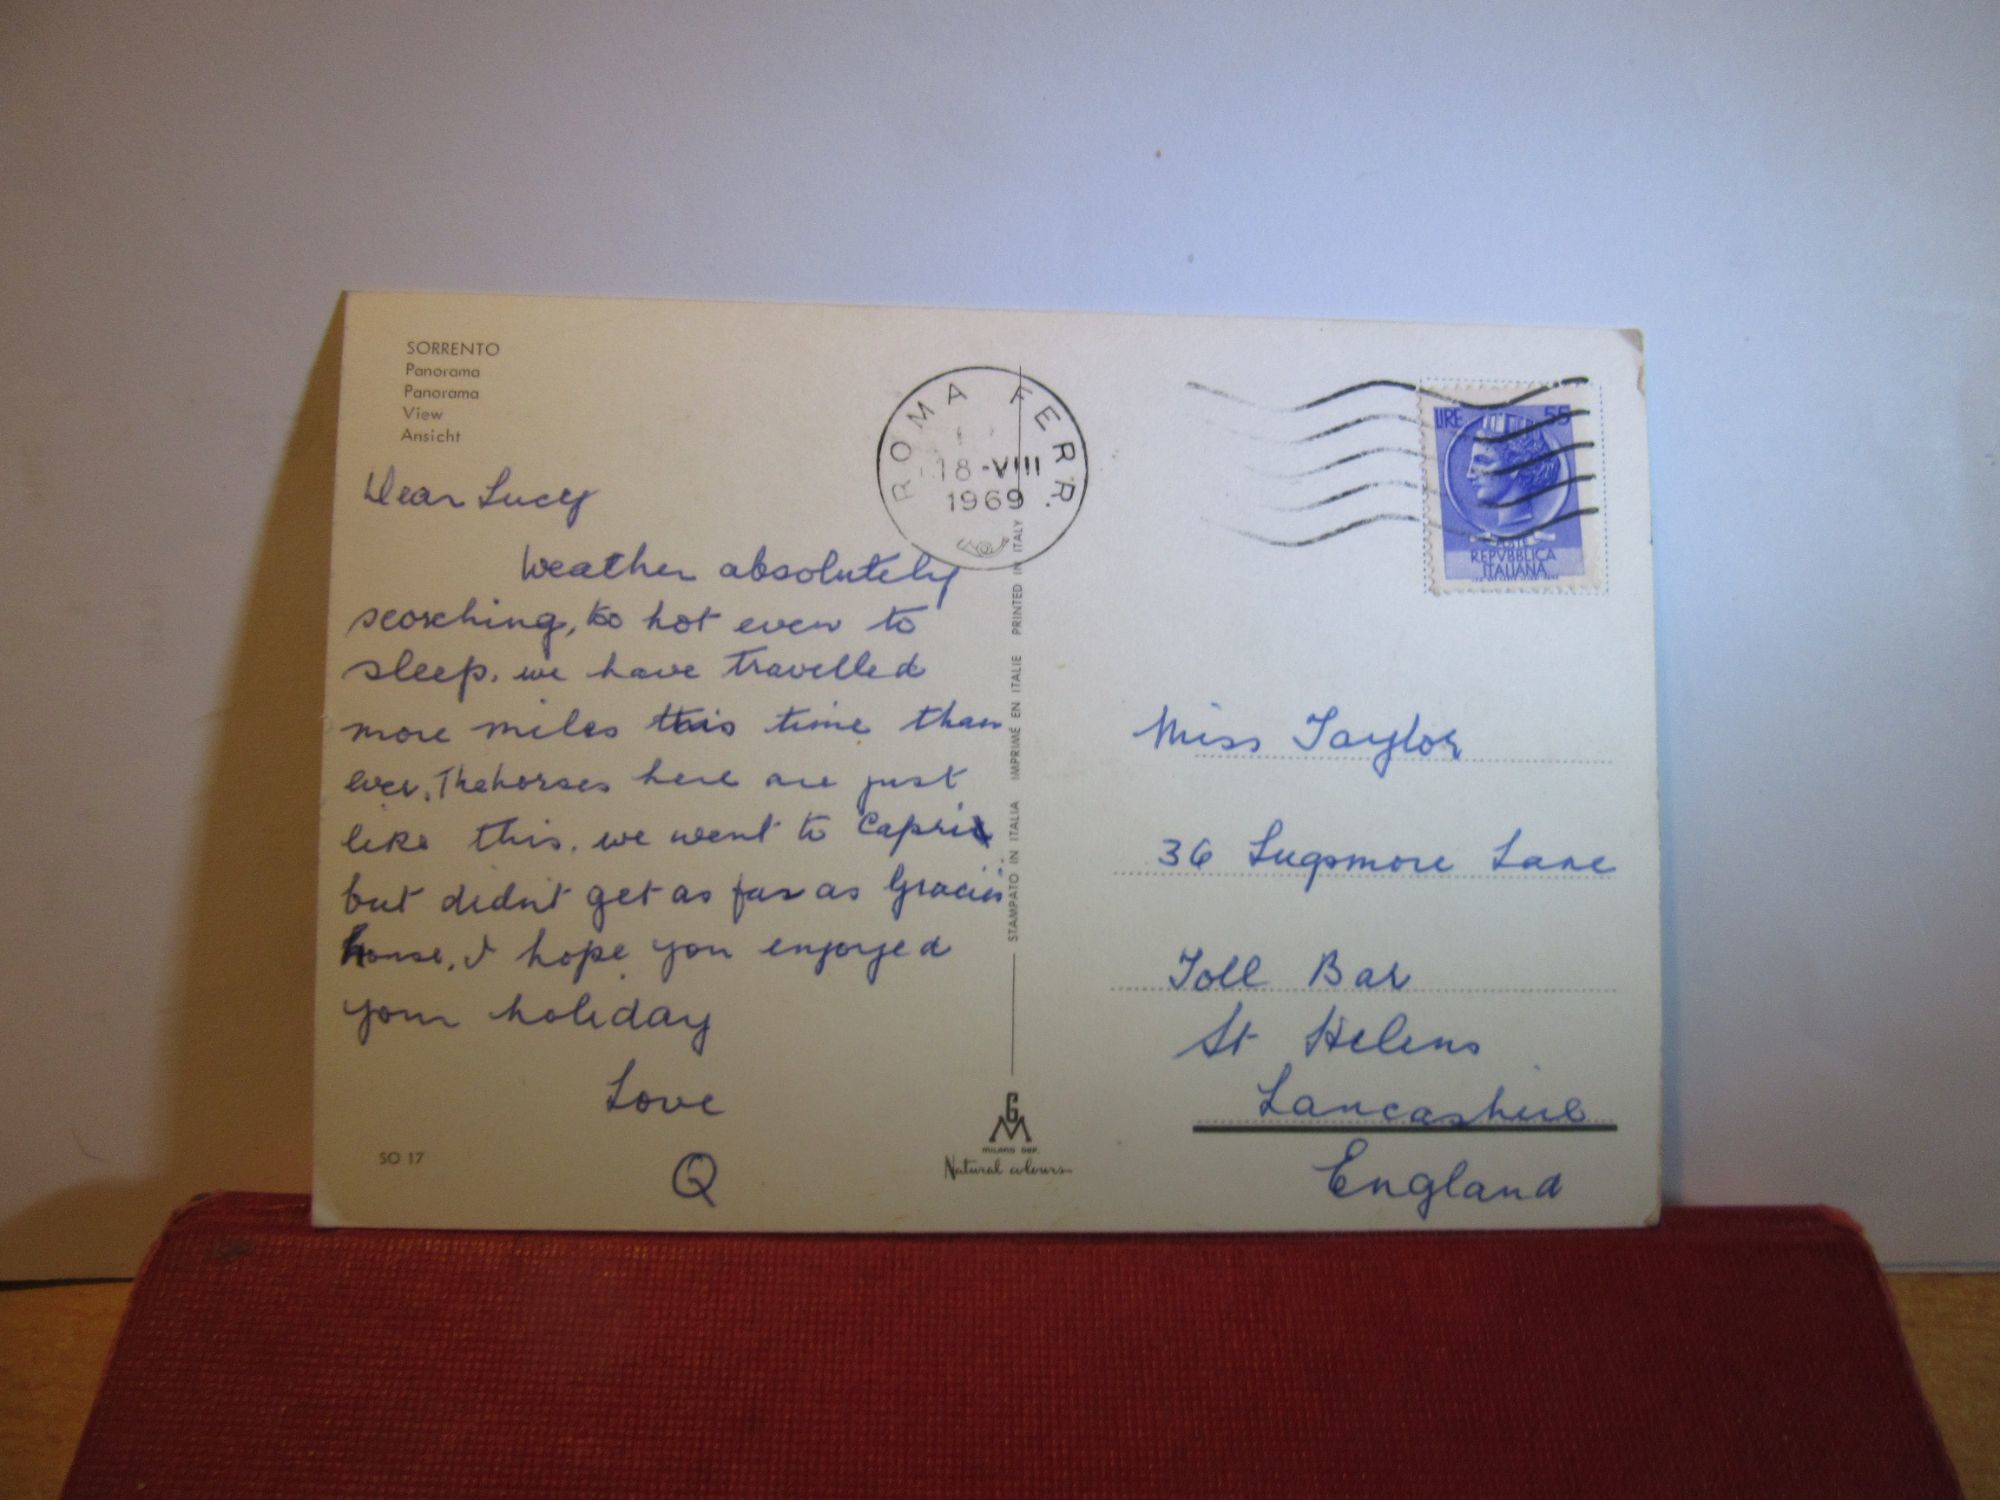 SORRENTO
Panorama
Panorama
View
Ansicht
Dear Lucy
Weather absolutely
scorching, too hot even to
sleep. we have travelled
more miles this time than
ever. The horses here are just
like this. we went to Capri
but didn't get as far as Gracie's
house, I hope you enjoyed
your holiday
Love
Q
SO 17
ROMA FERR.
18-VIII
1969
STAMPATO IN ITALIA IMPRIMÉ EN ITALIE PRINTED IN ITALY
GM
MILANO DEP.
Natural colours
LIRE 55
POSTE
REPVBBLICA
ITALIANA
Miss Taylor
36 Lugsmore Lane
Toll Bar
St Helens
Lancashire
England